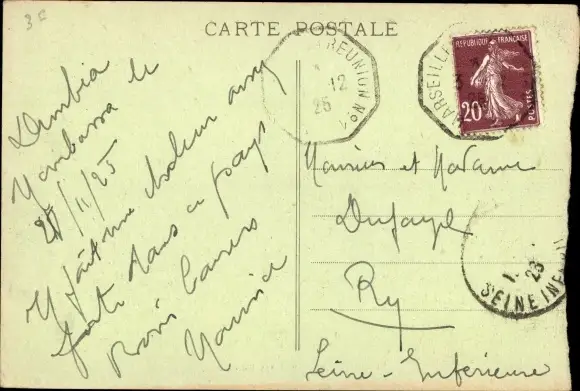 3€
CARTE POSTALE
REUNION N°1
12
25
MARSEILLE
REPUBLIQUE FRANÇAISE
20c
POSTES
Mombassa le
/11/25
Il fait une chaleur assez
forte dans ce pays
Bons baisers
Maurice
Monsieur et Madame
Dufayel
Ry
Seine-Inférieure
SEINE INF